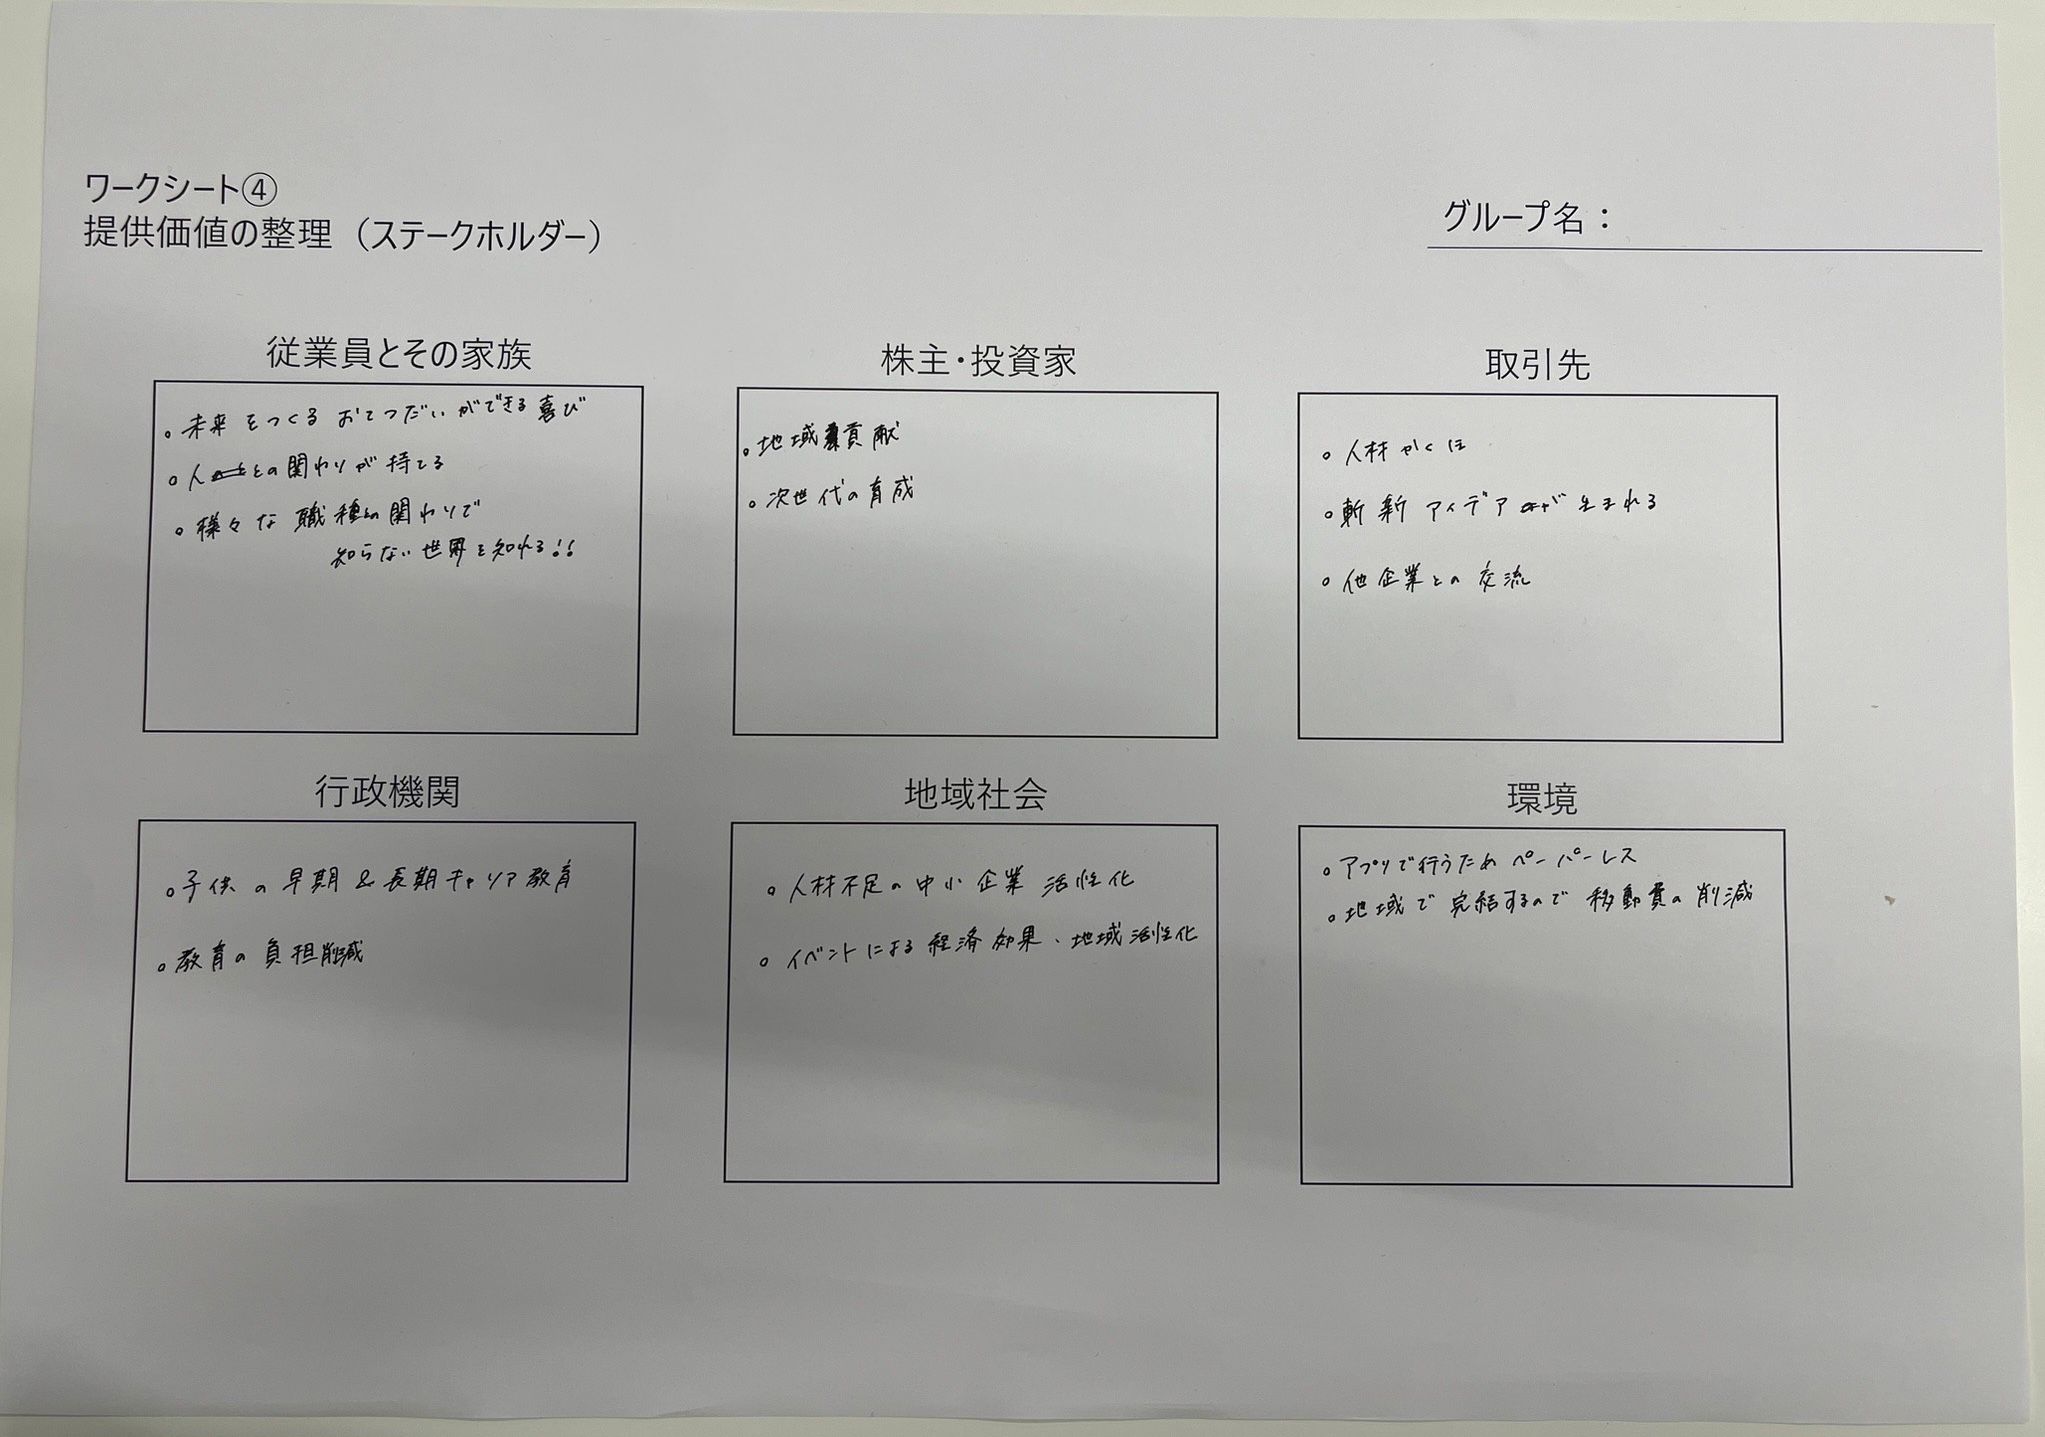 ワークシート④
提供価値の整理（ステークホルダー）
グループ名：
従業員とその家族
。未来をつくるおてつだいができる喜び
。人との関わりが持てる
。様々な職種の関わりで
知らない世界を知れる!!
株主・投資家
。地域貢献
。次世代の育成
取引先
。人材かくほ
。斬新アイデアが生まれる
。他企業との交流
行政機関
。子供の早期&長期キャリア教育
。教育の負担削減
地域社会
。人材不足の中小企業活性化
。イベントによる経済効果、地域活性化
環境
。アプリで行うためペーパーレス
。地域で完結するので移動費の削減